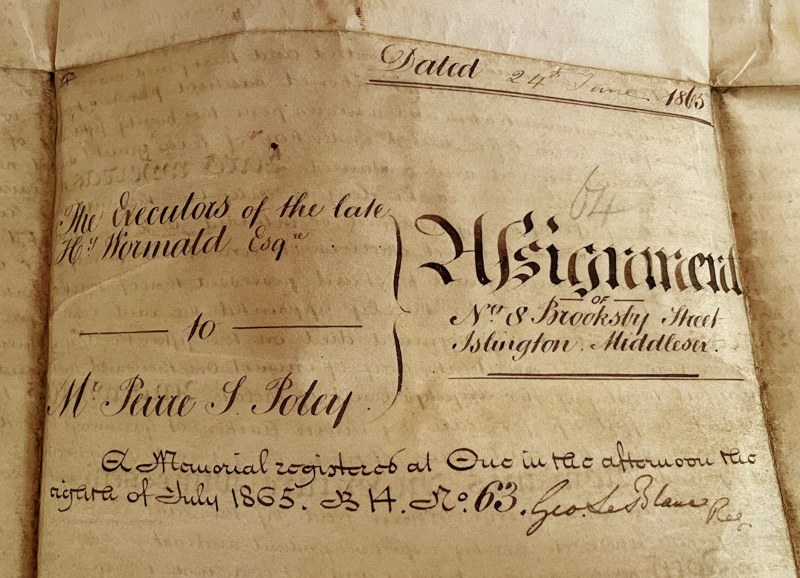 Dated 24th June 1865
64
The Executors of the late
Hy Wormald Esqre
to
Mr Pierre S. Poley
Assignment
OF
No 8 Brooksby Street
Islington. Middlesex.
A Memorial registered at One in the afternoon the
eighth of July 1865. B 14. No. 63. Geo. Le Blanc Reg.